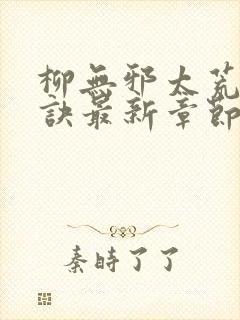 柳無邪太荒
訣最新章節
秦時了了